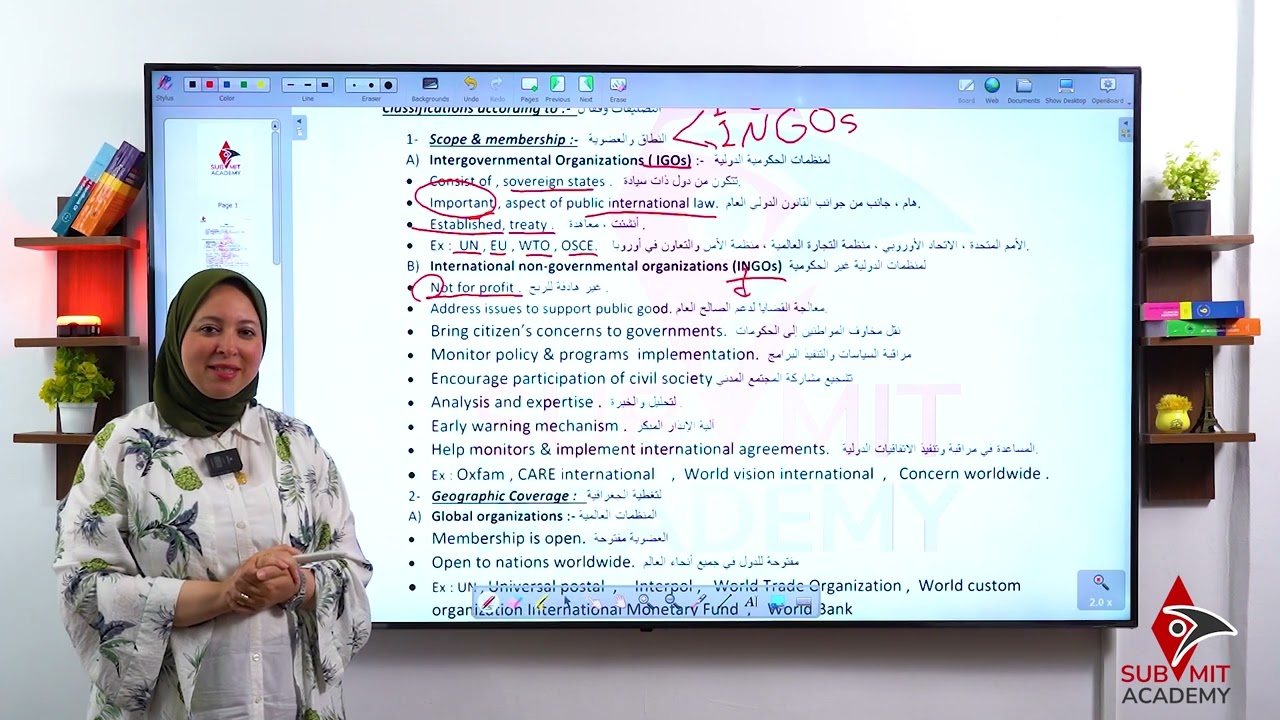 Stylus
Color
Line
Eraser
Backgrounds
Undo
Redo
Pages
Previous
Next
Erase
Board
Web
Documents
Show Desktop
OpenBoard
SUB MIT
ACADEMY
Page 1
Classifications according to :-
1- Scope & membership :- النطاق والعضوية
INGOs
A) Intergovernmental Organizations ( IGOs) :- لمنظمات الحكومية الدولية
• Consist of , sovereign states . تتكون من دول ذات سيادة.
• Important , aspect of public international law. هام ، جانب من جوانب القانون الدولى العام.
• Established, treaty . أنشئت ، معاهدة .
• Ex : UN , EU , WTO , OSCE. الأمم المتحدة ، الاتحاد الأوروبي ، منظمة التجارة العالمية ، منظمة الأمن والتعاون في أوروبا.
B) International non-governmental organizations (INGOs) لمنظمات الدولية غير الحكومية
• Not for profit . غير هادفة للربح .
• Address issues to support public good. معالجة القضايا لدعم الصالح العام.
• Bring citizen’s concerns to governments. نقل مخاوف المواطنين الى الحكومات
• Monitor policy & programs implementation. مراقبة السياسات والتنفيذ البرامج
• Encourage participation of civil society تشجيع مشاركة المجتمع المدني
• Analysis and expertise . لتحليل والخبرة.
• Early warning mechanism . آلية الانذار المبكر
• Help monitors & implement international agreements. المساعدة في مراقبة وتنفيذ الاتفاقيات الدولية.
• Ex : Oxfam , CARE international , World vision international , Concern worldwide .
2- Geographic Coverage : لتغطية الجغرافية
A) Global organizations :- المنظمات العالمية
• Membership is open. العضوية مفتوحة
• Open to nations worldwide. مفتوحة للدول في جميع أنحاء العالم
• Ex : UN , Universal postal , Interpol , World Trade Organization , World custom
organization International Monetary Fund , World Bank
2.0 x
MIT
ACADEMY
SUB MIT
ACADEMY